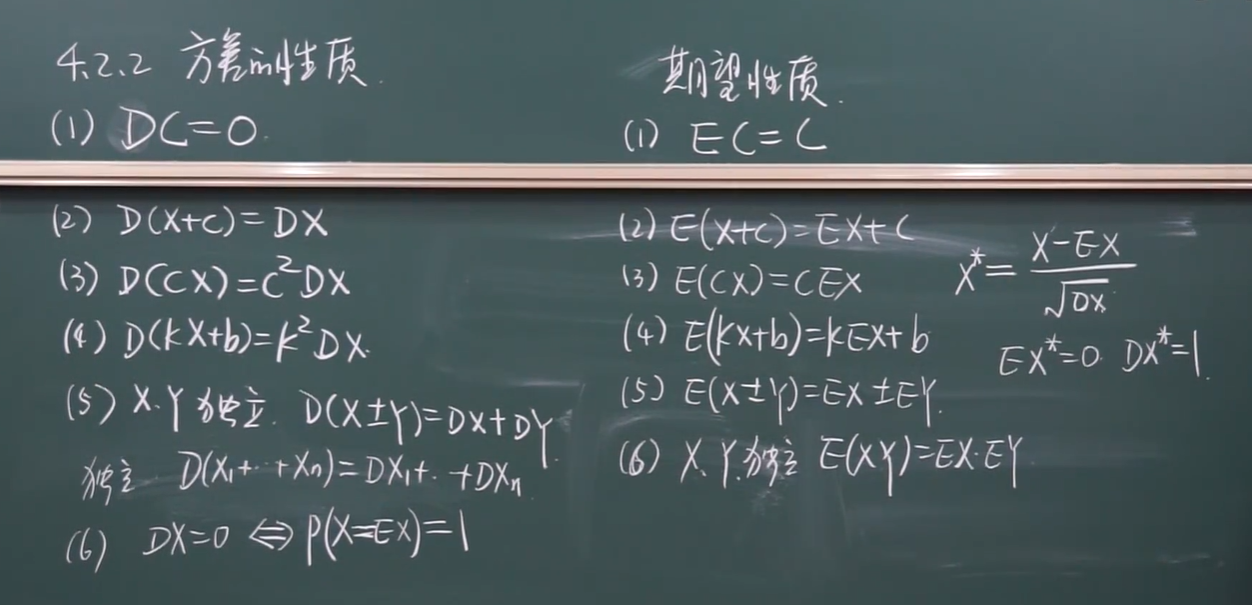 4.2.2 方差的性质.
(1) DC=0.
(2) D(X+C)=DX
(3) D(CX)=C²DX
(4) D(kX+b)=k²DX.
(5) X.Y独立. D(X±Y)=DX+DY.
独立 D(X₁+··+Xₙ)=DX₁+··+DXₙ
(6) DX=0 ⇔ P(X=EX)=1
期望性质.
(1) EC=C
(2) E(X+C)=EX+C
(3) E(CX)=CEX
(4) E(kX+b)=kEX+b
(5) E(X±Y)=EX±EY.
(6) X.Y.独立 E(XY)=EX·EY
X*=(X-EX)/√DX
EX*=0. DX*=1.